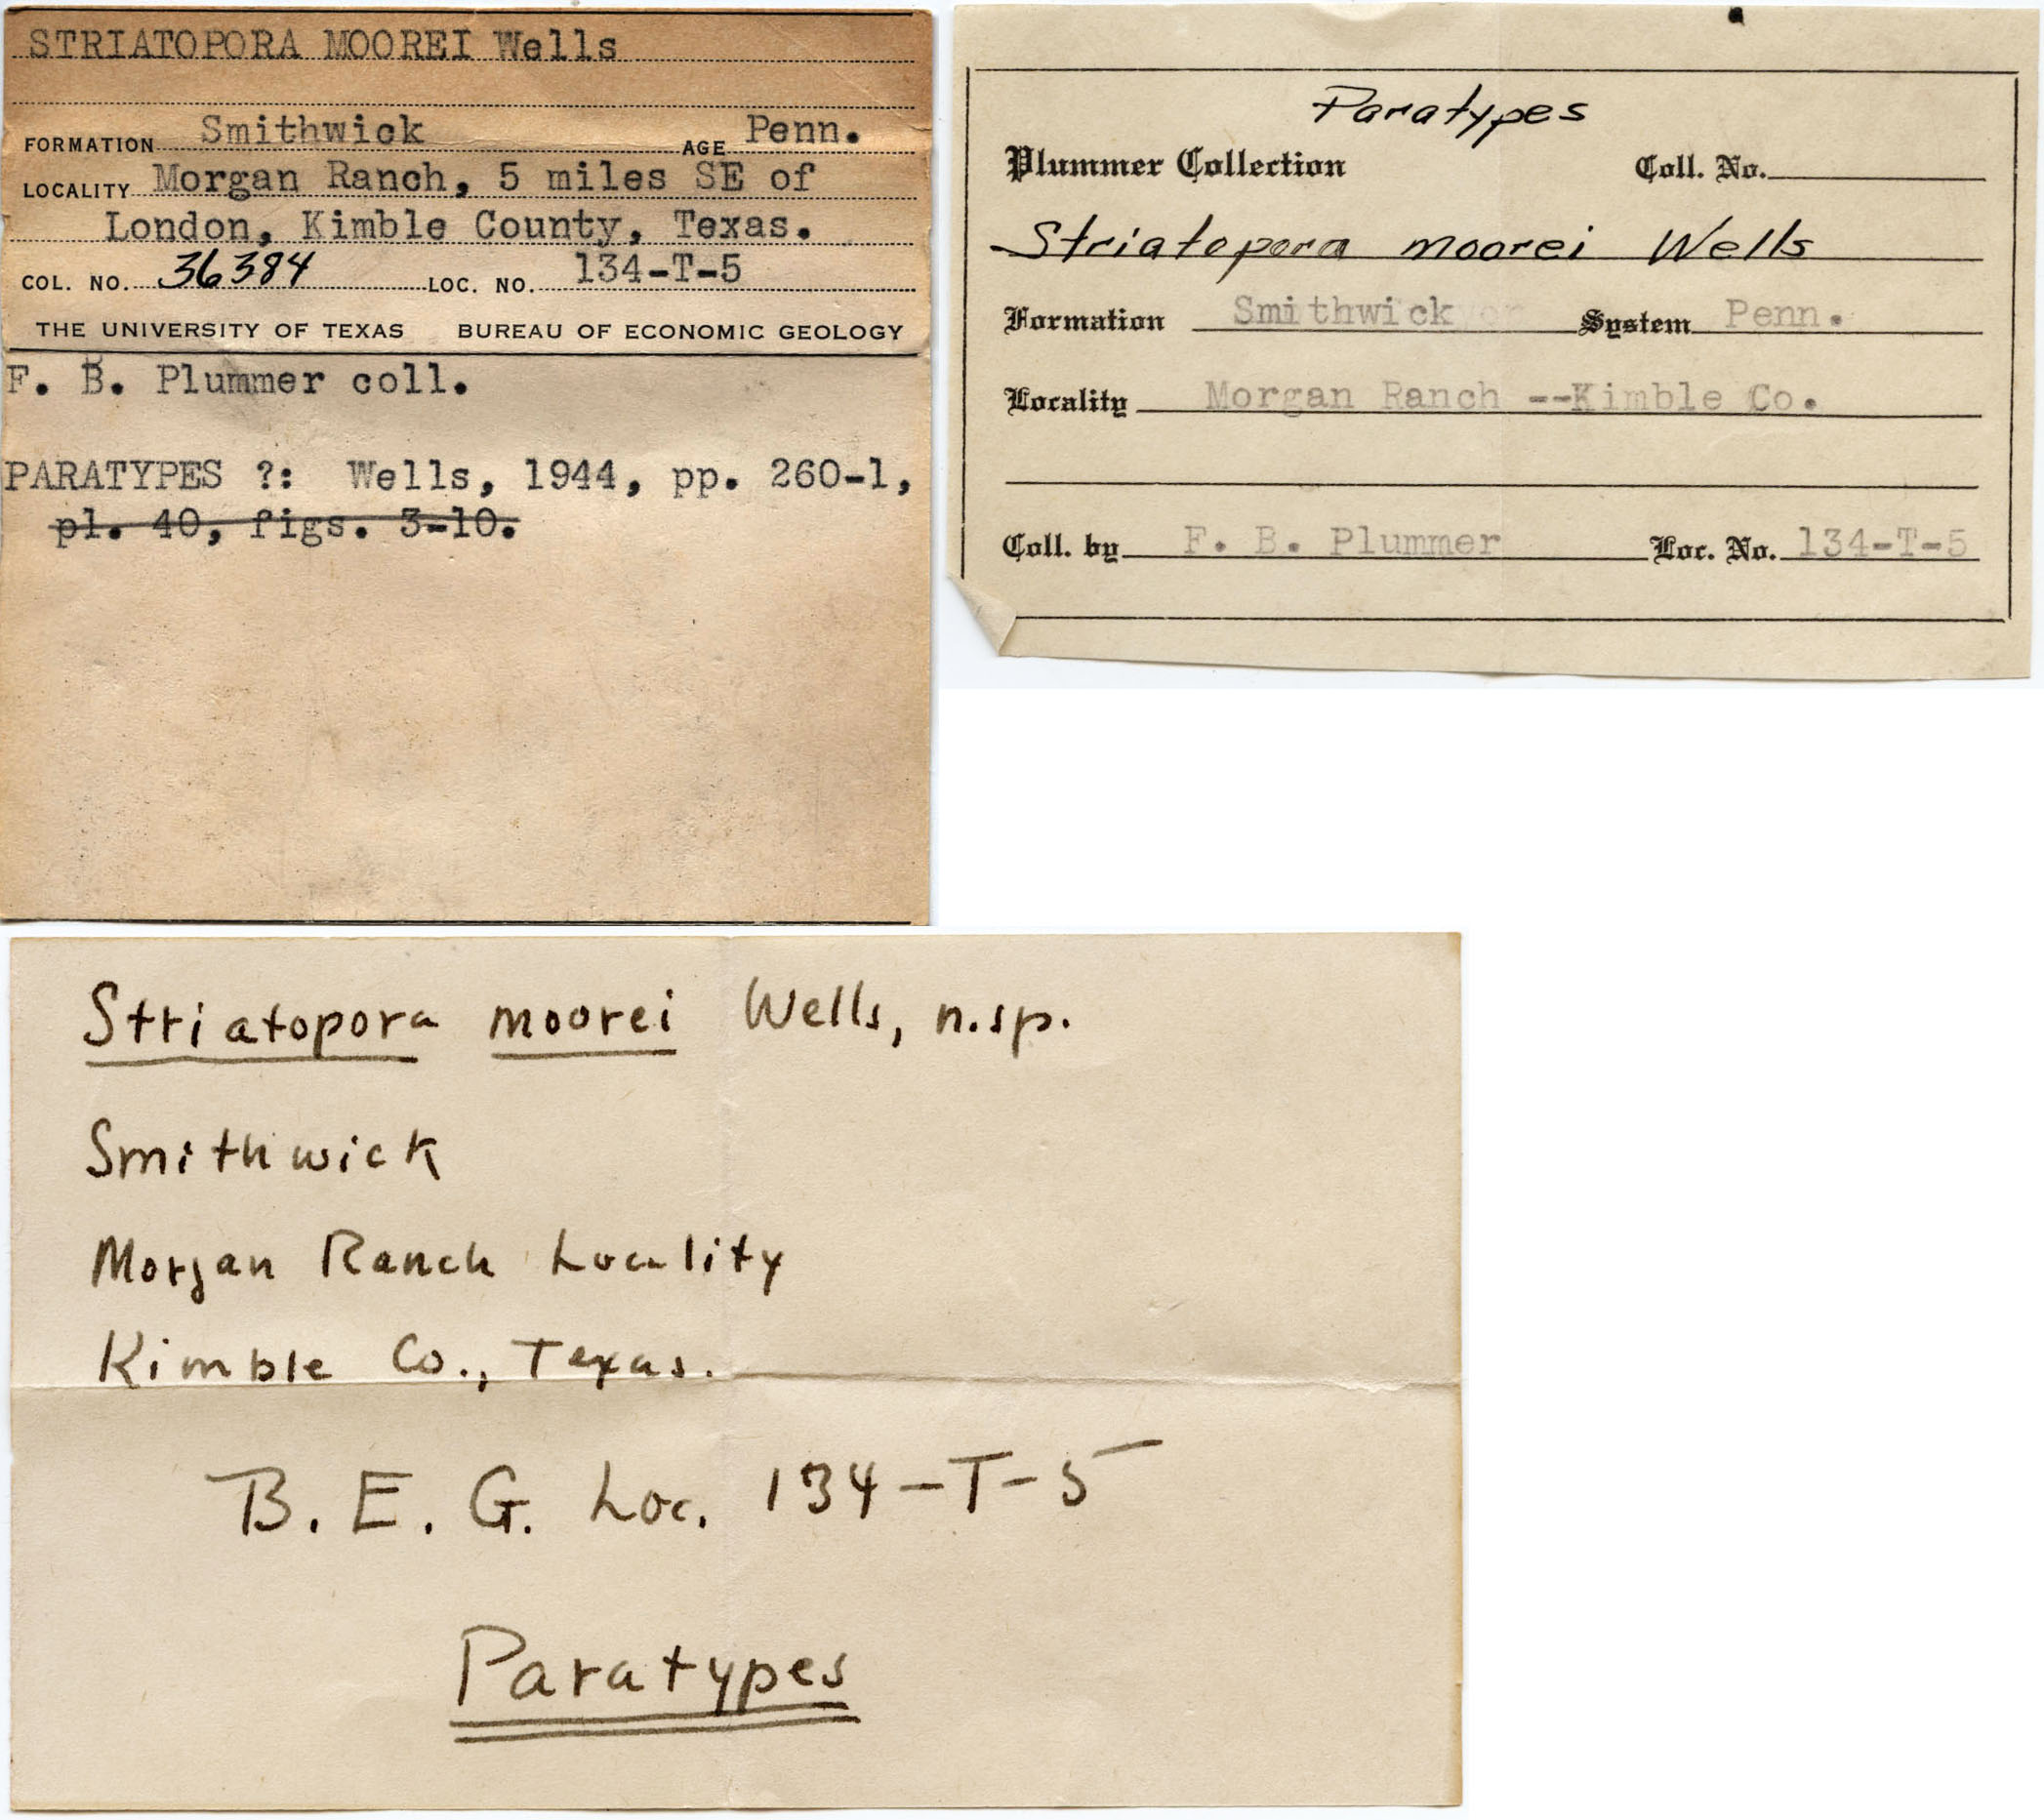 STRIATOPORA MOOREI Wells
FORMATION Smithwick AGE Penn.
LOCALITY Morgan Ranch, 5 miles SE of
London, Kimble County, Texas.
COL. NO. 36384 LOC. NO. 134-T-5
THE UNIVERSITY OF TEXAS BUREAU OF ECONOMIC GEOLOGY
F. B. Plummer coll.
PARATYPES ?: Wells, 1944, pp. 260-1,
pl. 40, figs. 3-10.
Paratypes
Plummer Collection Coll. No.
Striatopora moorei Wells
Formation Smithwick System Penn.
Locality Morgan Ranch --Kimble Co.
Coll. by F. B. Plummer Loc. No. 134-T-5
Striatopora moorei Wells, n.sp.
Smithwick
Morgan Ranch Locality
Kimble Co., Texas.
B. E. G. Loc. 134-T-5
Paratypes